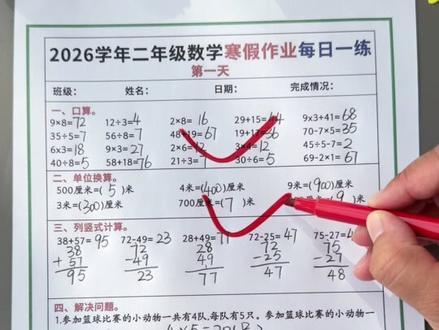 2026学年二年级数学寒假作业每日一练
第一天
班级： 姓名： 日期： 完成情况：
一、口算。
9×8=72 12÷3=4 2×8=16 29+15=44 9×3+41=68
35÷5=7 56÷8=7 48+19=67 19+17=36 70-7×5=35
6×3=18 9×3=27 2×6=12 3×4=12 45÷5-7=2
40÷8=5 58+18=76 21÷3=7 30÷6=5 69-2×1=67
二、单位换算。
500厘米=(5)米 4米=(400)厘米 9米=(900)厘米
3米=(300)厘米 700厘米=(7)米 厘米=(9)米
三、列竖式计算。
38+57=95 72-49=23 28+49=77 72-25=47 75-27=4
38 72 28 72 75
+57 -49 +49 -25 -27
95 23 77 47 48
四、解决问题。
1.参加篮球比赛的小动物一共有4队,每队有5只。参加篮球比赛的小动物一
4×5=20(只)